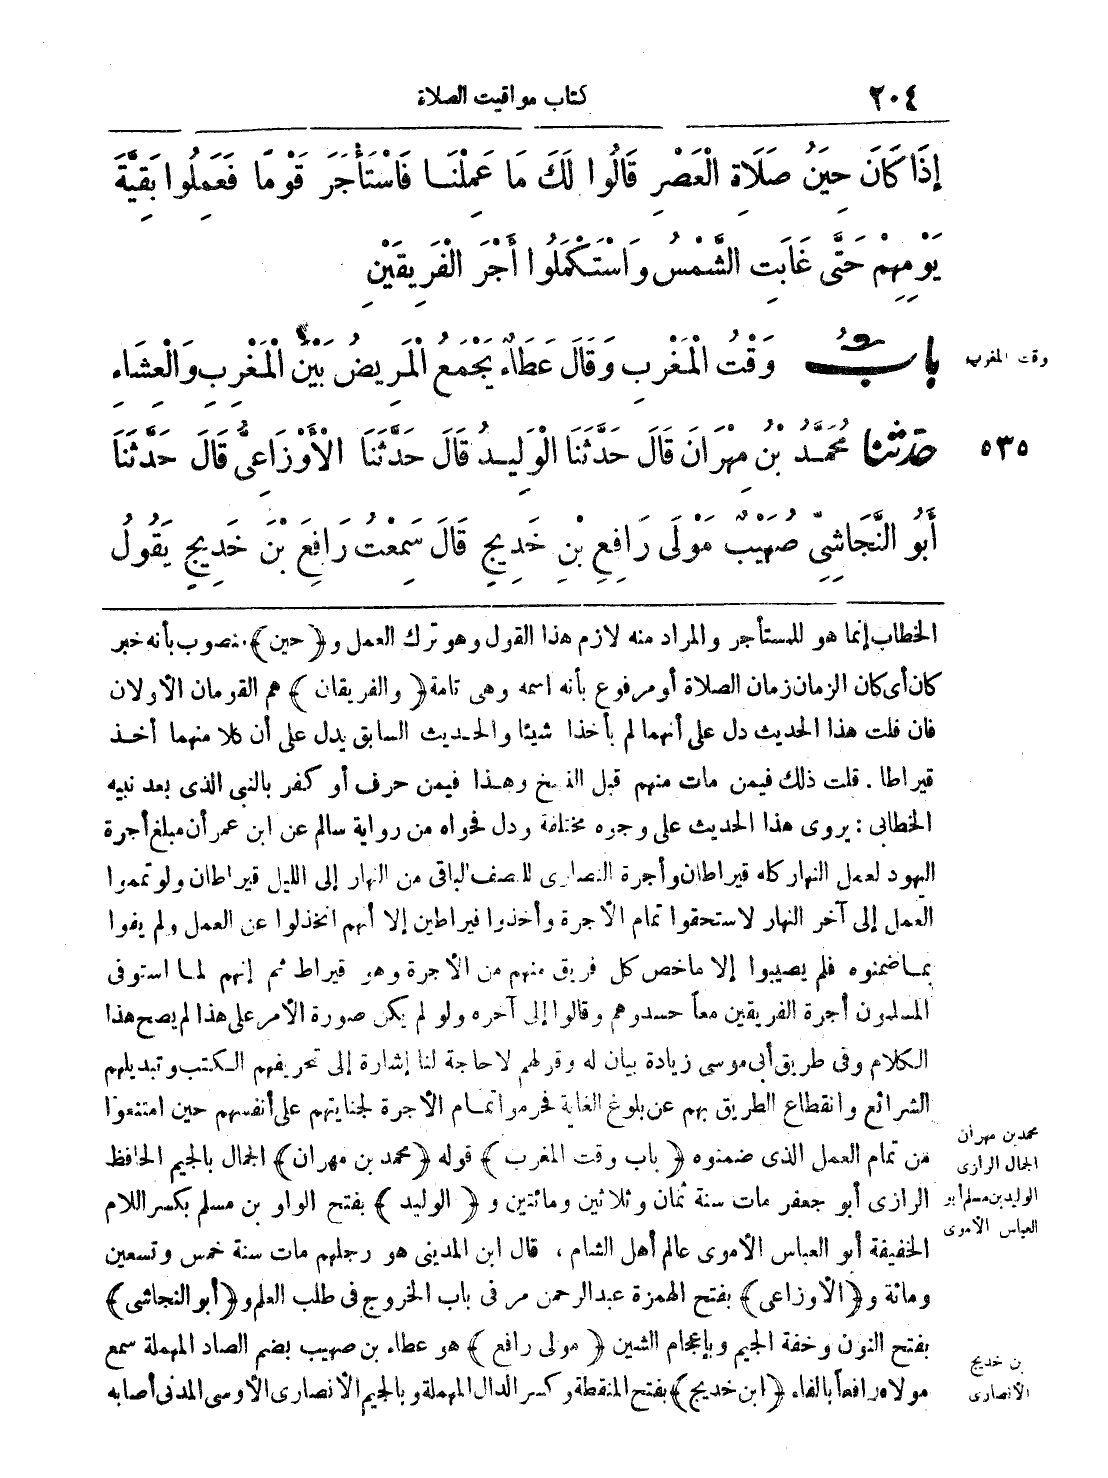 ٢٠٤
كتاب مواقيت الصلاة
إِذَا كَانَ حِينَُ صَلَاةِ الْعَصْرِ قَالُوا لَكَ مَا عَمِلْنَا فَاسْتَأْجَرَ قَوْمًا فَعَمِلُوا بَقِيَّةَ
يَوْمِهِمْ حَتَّى غَابَتِ الشَّمْسُ وَاسْتَكْمَلُوا أَجْرَ الْفَرِيقَيْنِ
بابُ وَقْتُ الْمَغْرِبِ وَقَالَ عَطَاءٌ يَجْمَعُ الْمَرِيضُ بَيْنَ الْمَغْرِبِ وَالْعِشَاءِ
وقت المغرب
حدثنا مُحَمَّدُ بْنُ مِهْرَانَ قَالَ حَدَّثَنَا الْوَلِيدُ قَالَ حَدَّثَنَا الْأَوْزَاعِىُّ قَالَ حَدَّثَنَا
٥٣٥
أَبُو النَّجَاشِىِّ صُهَيْبٌ مَوْلَى رَافِعِ بْنِ خَدِيجٍ قَالَ سَمِعْتُ رَافِعَ بْنَ خَدِيجٍ يَقُولُ
الخطاب إنما هو للمستأجر والمراد منه لازم هذا القول وهو ترك العمل و ﴿حين﴾ منصوب بأنه خبر
كان أى كان الزمان زمان الصلاة أو مرفوع بأنه اسمه وهى تامة ﴿والفريقان﴾ هم القومان الأولان
فان قلت هذا الحديث دل على أنهما لم يأخذا شيئا والحديث السابق يدل على أن كلا منهما أخذ
قيراطا . قلت ذلك فيمن مات منهم قبل النسخ وهذا فيمن حرف أو كفر بالنبى الذى بعد نبيه
الخطابى : يروى هذا الحديث على وجوه مختلفة ودل فحواه من رواية سالم عن ابن عمر أن مبلغ أجرة
اليهود لعمل النهار كله قيراطان وأجرة النصارى للنصف الباقى من النهار إلى الليل قيراطان ولو تمموا
العمل إلى آخر النهار لاستحقوا تمام الأجرة وأخذوا قيراطين إلا أنهم انخذلوا عن العمل ولم يفوا
بما ضمنوه فلم يصيبوا إلا ما خص كل فريق منهم من الأجرة وهو قيراط ثم إنهم لما استوفى
المسلمون أجرة الفريقين معاً حسدوهم وقالوا إلى آخره ولو لم يكن صورة الأمر على هذا لم يصح هذا
الكلام وفى طريق أبى موسى زيادة بيان له وقولهم لا حاجة لنا إشارة إلى تحريفهم الكتب وتبديلهم
الشرائع وانقطاع الطريق بهم عن بلوغ الغاية فحرموا تمام الأجرة لجنايتهم على أنفسهم حين امتنعوا
من تمام العمل الذى ضمنوه ﴿باب وقت المغرب﴾ قوله ﴿محمد بن مهران﴾ الجمال بالجيم الحافظ
الرازى أبو جعفر مات سنة ثمان وثلاثين ومائتين و ﴿الوليد﴾ بفتح الواو بن مسلم بكسر اللام
الخفيفة أبو العباس الأموى عالم أهل الشام ، قال ابن المدينى هو رجلهم مات سنة خمس وتسعين
ومائة و ﴿الأوزاعى﴾ بفتح الهمزة عبدالرحمن مر فى باب الخروج فى طلب العلم و ﴿أبو النجاشى﴾
بفتح النون وخفة الجيم وبإعجام الشين ﴿مولى رافع﴾ هو عطاء بن صهيب بضم الصاد المهملة سمع
مولاه رافعاً بالفاء ﴿ابن خديج﴾ بفتح المنقطة وكسر الدال المهملة وبالجيم الأنصارى الأوسى المدنى أصابه
محمد بن مهران
الجمال الرازى
الوليد بن مسلم أبو
العباس الأموى
بن خديج
الأنصارى